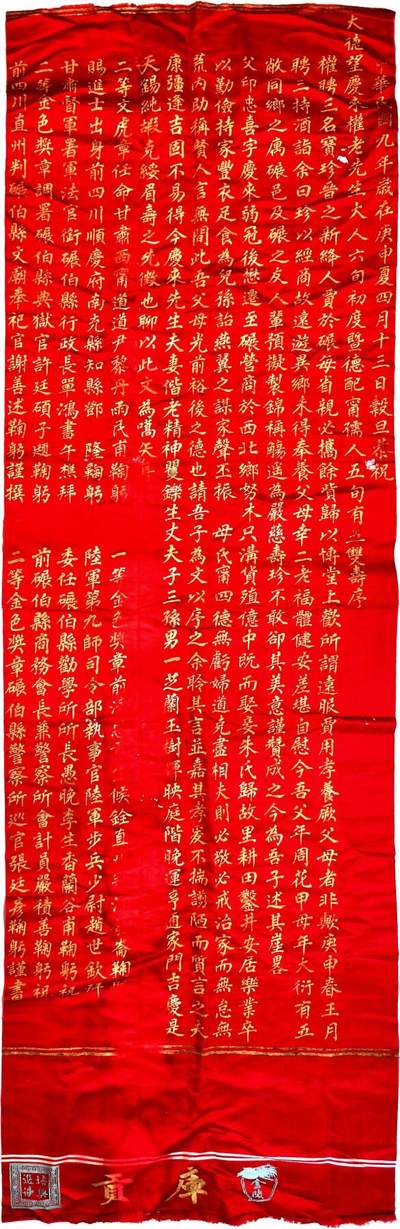 中華民國九年歲在庚申夏四月十三日穀旦恭祝
大德望慶來權老先生大人六旬初度暨德配甯孺人五旬有五雙壽序
權聘三名寶珍晉之新絳人賈於碾每省親必攜餘貲歸以博堂上歡所謂遠服賈用孝養厥父母者非歟庚申春王月
聘三持酒詣余曰珍以經商故遠遊異鄉未得奉養父母幸二老福體健安差堪自慰今吾父年周花甲母年大衍有五
敝同鄉之属碾邑及碾之友人輩預擬製錦稱觴遥為嚴慈壽珍不敢卻其美意謹贊成之今為吾子述其崖畧
父印忠喜字慶來弱冠後世遷至碾營商於西北鄉努木只溝貨殖億中既而娶妻朱氏歸故里耕田鑿井安居樂業卒
以勤儉持家豐衣足食為兒孫詒燕翼之謀家聲丕振 母氏甯四德無虧婦道克盡相夫則必敬必戒治家而無怠無
荒内助稱賢人言無閒此吾父母光前裕後之德也請吾子為文以序之余聆其言並嘉其孝爰不揣謭陋而質言之夫
康彊逢吉固不易得今慶來先生夫妻偕老精神矍鑠生丈夫子三孫男一芝蘭玉樹輝映庭階晚運亨通家門吉慶是
天錫純嘏克綏眉壽之先徵也聊以此文為噶矢耳
二等文虎章任命甘肅西甯道道尹黎丹雨民甫鞠躬
賜進士出身前四川順慶府南充縣知縣鄧隆鞠躬
甘肅督軍署軍法官銜碾伯縣行政長單鴻書午樵拜
二等金色獎章調署碾伯縣典獄官許廷碩子遐鞠躬
前四川直州判碾伯縣文廟奉祀官謝善述鞠躬謹撰
一等金色獎章前
候銓直
崙鞠
陸軍第九師司令部執事官陸軍步兵少尉趙世欽拜
委任碾伯縣勸學所所長愚晚李生香蘭谷甫鞠躬祝
前碾伯縣商務會長兼警察所會計員嚴積善鞠躬祝
二等金色獎章碾伯縣警察所巡官張廷彦鞠躬謹書
貢庫